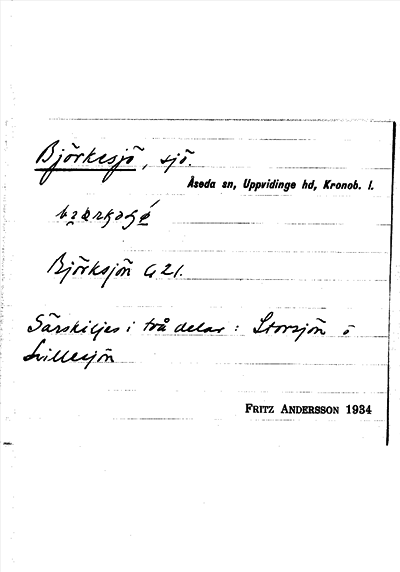 Björkesjö, sjö.
Åseda sn, Uppvidinge hd, Kronob. l.
Björksjön G 21.
Särskiljes i två delar: Storsjön o
Lillesjön
FRITZ ANDERSSON 1934